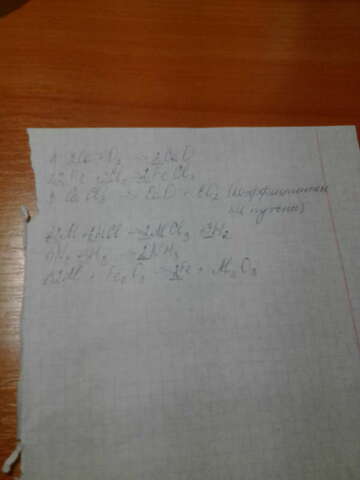 2Ca + O₂ → 2CaO
2Fe + 3Cl₂ → 2FeCl₃
CO₂ (коэффициент
не нужен)
2Al + 6HCl → 2AlCl₃ 3H₂
N₂ + 3H₂ → 2NH₃
2Al + Fe₂O₃ → 2Fe + Al₂O₃